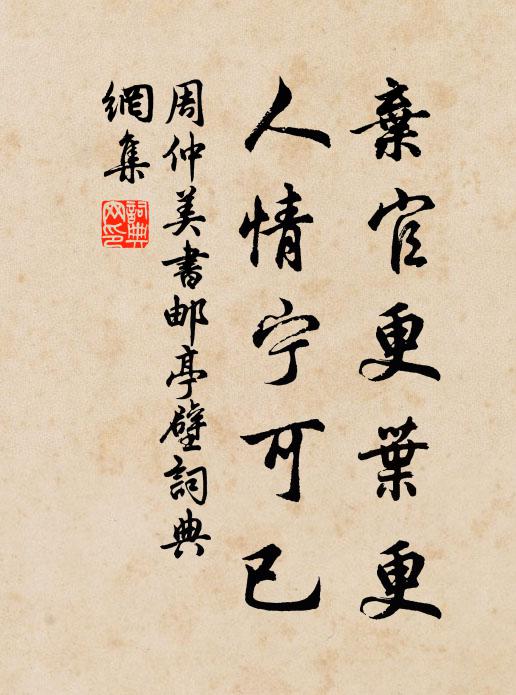 棄官更葉更
人情宁可已
周仲美書邮亭壁詞典
網集
詞典
网印